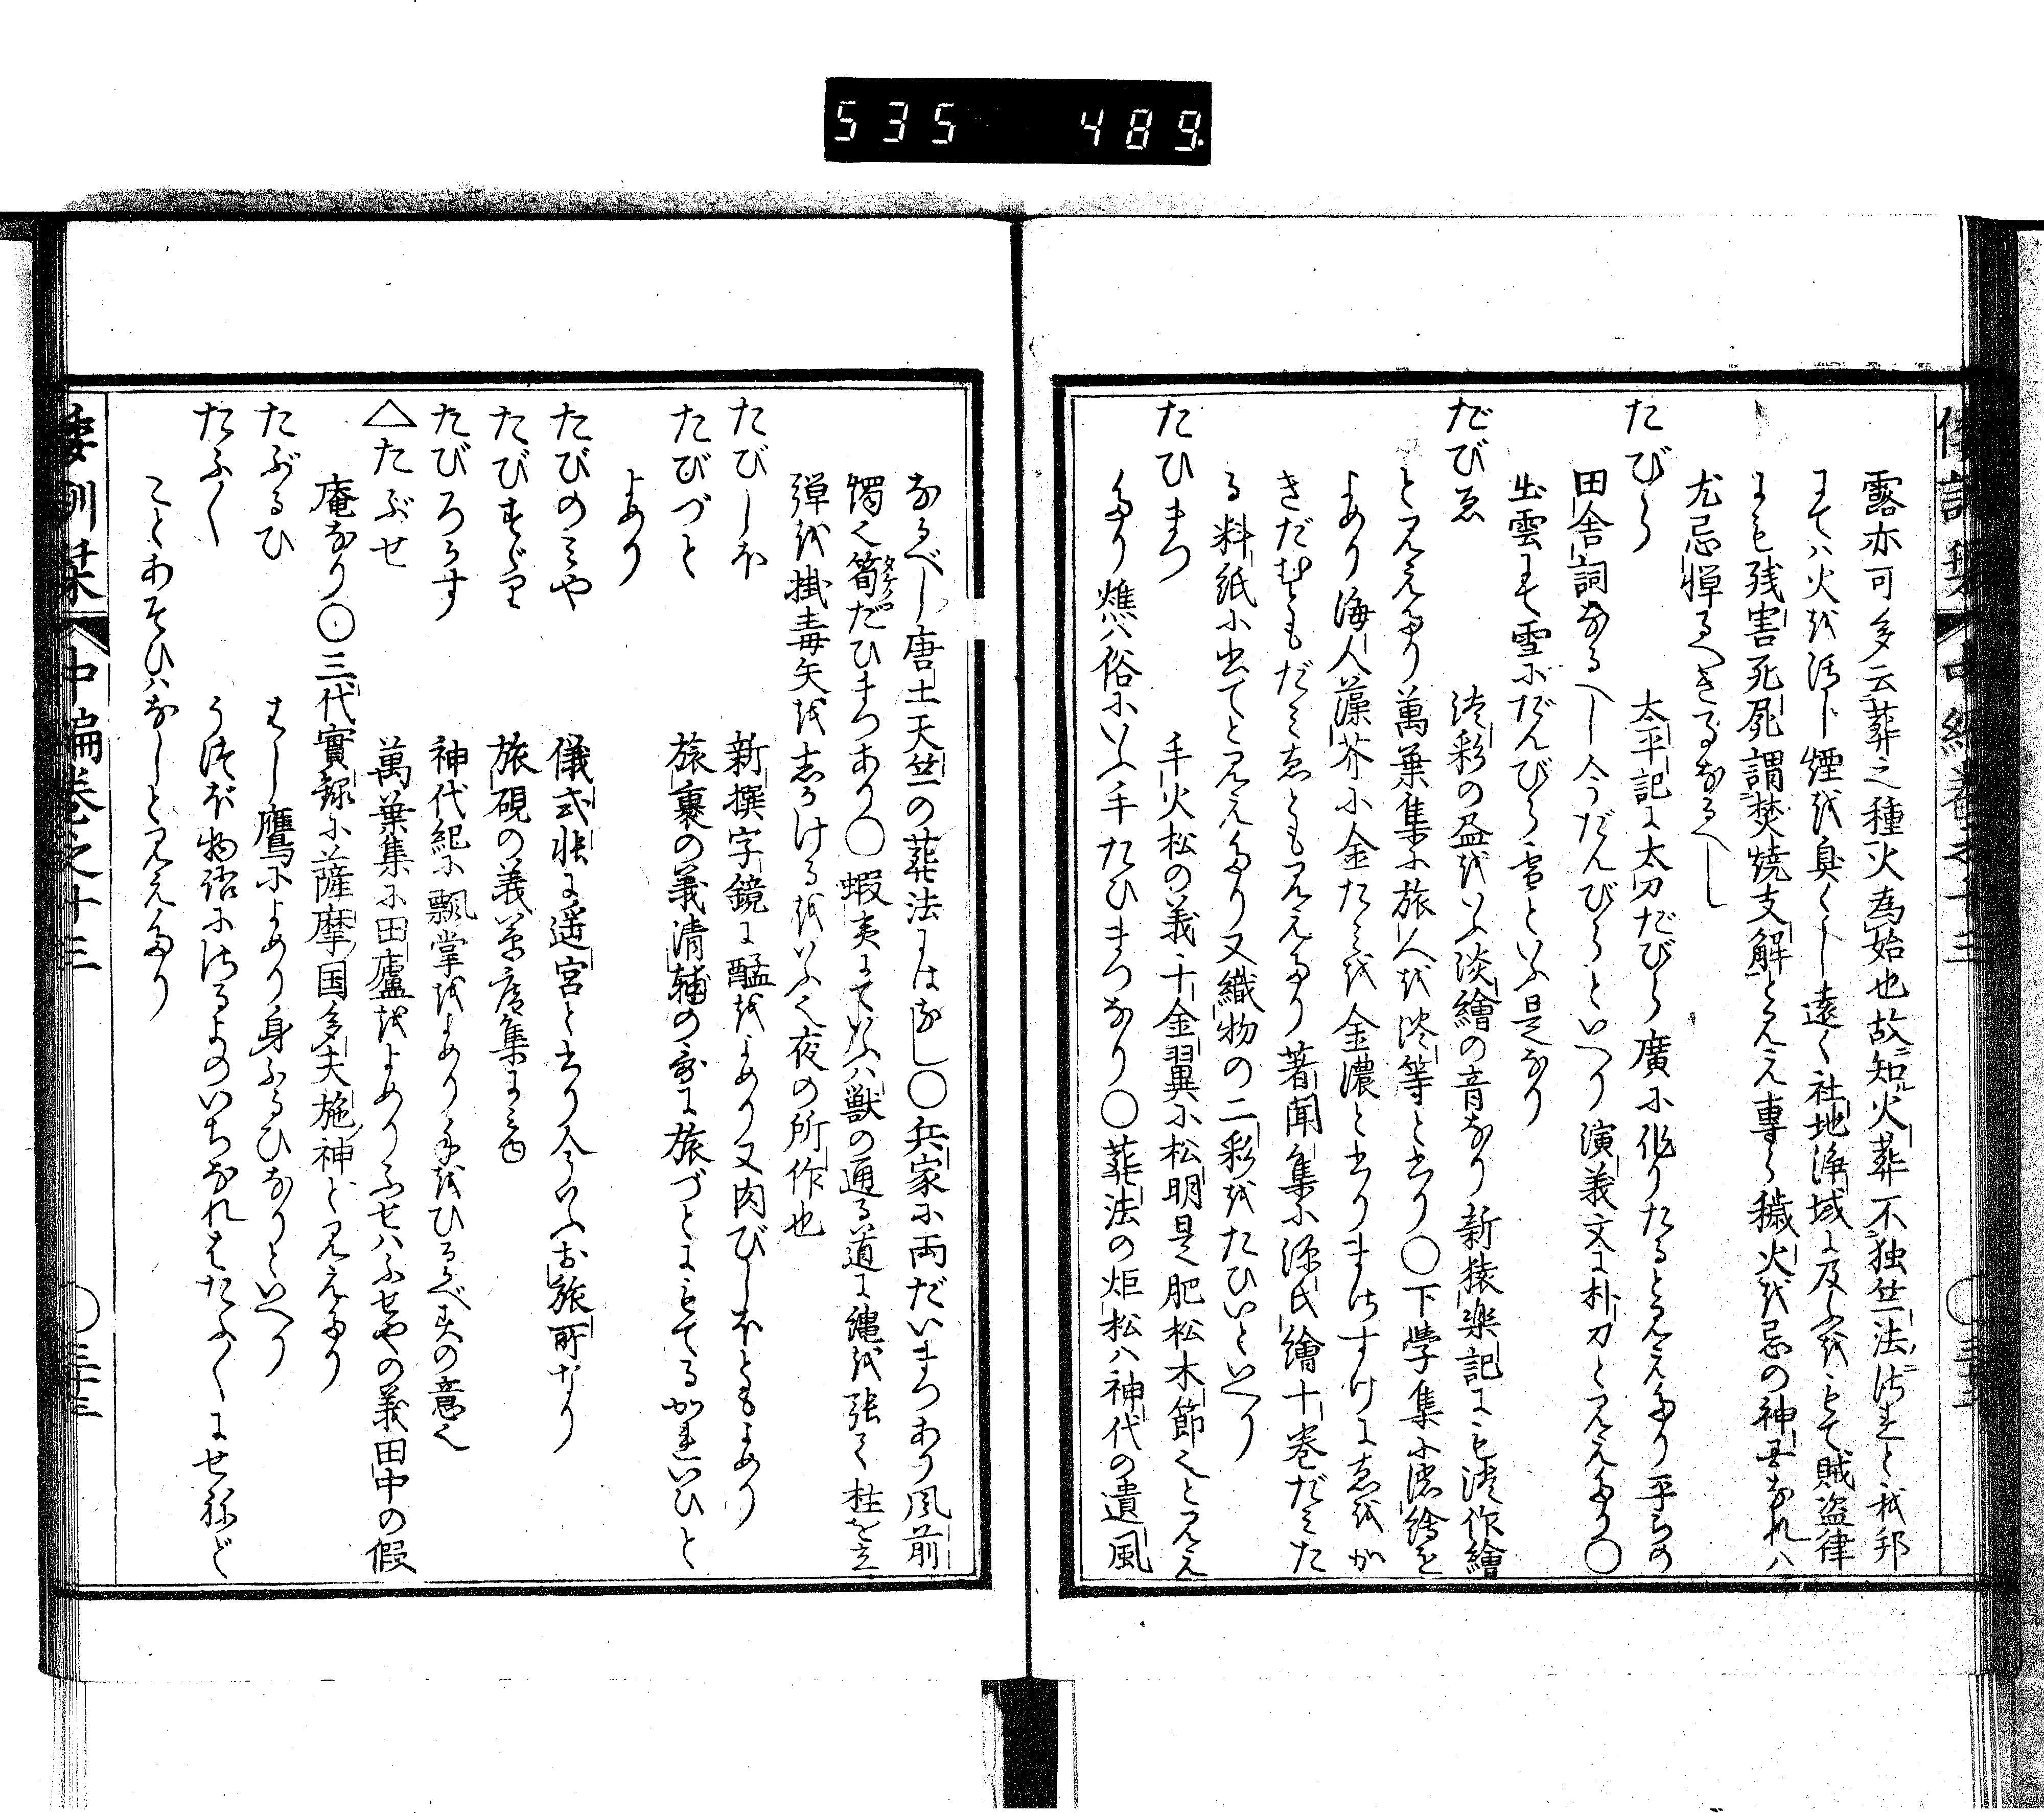 535 489
露亦可多云葬之種火為始也故知火葬不独竺法ニ
にてハ火を活し煙を臭くし遠く社地浄域に及ふをもて賊盗律
にも残害死屍謂焚焼支解とみえ専ら穢火を忌の神國なれハ
尤忌憚るへき事なるへし
たびら 太平記に太刀だびら廣に作りたるとみえたり平らの
田舎詞なるへし今だんびらといへり演義文に朴刀とみえたり○
出雲にて雪にだんびら雪といふ是なり
だびゑ 濃彩の畫をいふ淡繪の音なり新猿楽記にも濃作繪
とみえたり萬葉集に旅人を淡等と書り○下學集に濃繪を
よめり海人藻芥に金たみを金濃と書りまさすけにゑをか
きだむともだミゑともみえたり著聞集に源氏繪十巻だミた
る料紙に書てとみえたり又織物の二彩をたひいといへり
たひまつ 手火松の義千金翼に松明是肥松木節也とみえ
たり燋ハ俗にいふ手たひまつなり○葬法の炬松ハ神代の遺風
なるべし唐土天竺の葬法にはなし○兵家に両だいまつあり風前
燭也筍だひまつあり○蝦夷にていふハ獣の通る道に縄を張て柱を立
弾を掛毒矢をしかけるをいふ也夜の所作也
たびしほ 新撰字鏡に醢をよめり又肉びしほともよめり
たびづと 旅裹の義清輔の歌に旅づとにもてるかれいひと
よめり
たびのミや 儀式帳に遥宮と書り今いふお旅所なり
たびすゞり 旅硯の義蔗集にミゆ
たびろかす 神代紀に飄掌をよめり手をひろべすの意也
△たぶせ 萬葉集に田廬をよめりふせハふせやの義田中の假
庵なり○三代實録に薩摩国多夫施神とみえたり
たぶるひ はし鷹によめり身ふるひなりといへり
たふ〱 うつほ物語にさるよのいちなれはたふ〱にせねど
ことあそひハなしとみえたり
倭訓栞 中編巻之十三 ○三十三